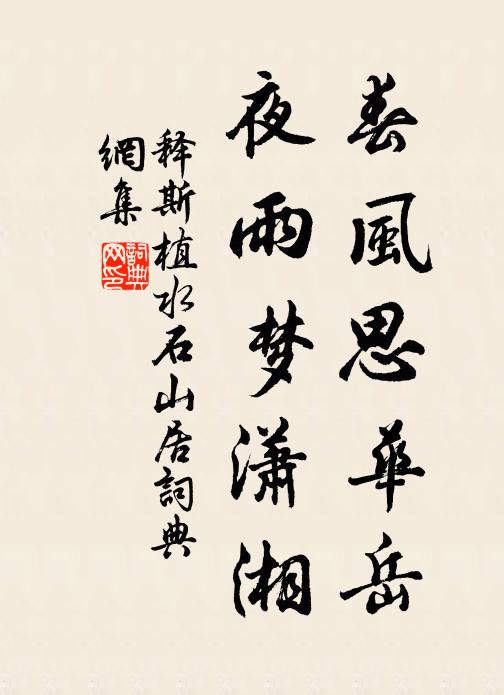 春風思華岳
夜雨梦瀟湘
释斯植水石山居詞典
網集
詞典
网印